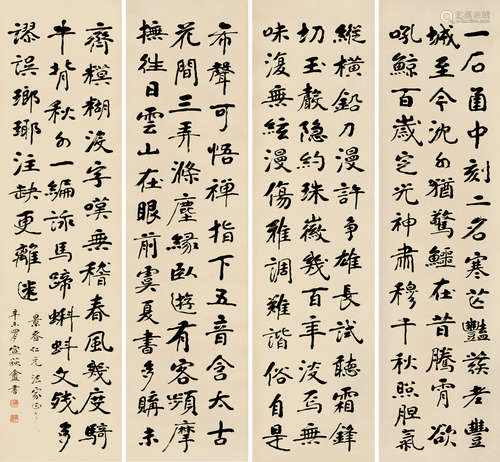 一石函中刻二名寒芒豔發老豐
城至今沈水猶驚鱷在昔騰霄欲
吼鯨百歲定光神肅穆千秋照膽氣
縱橫鉛刀漫許爭雄長試聽霜鋒
切玉聲隱約珠徽幾百年淡焉無
味復無絃漫傷雅調難諧俗自是
希聲可悟禪指下五音含太古
花間三弄滌塵緣臥遊有客頻摩
撫往日雲山在眼前虞夏書多購未
齊模糊沒字嘆無稽春風幾度騎
牛背秋水一編詠馬蹄蝌蚪文殘多
謬誤瑯瑯注缺更離迷
景春仁兄法家正
辛未羅盦書